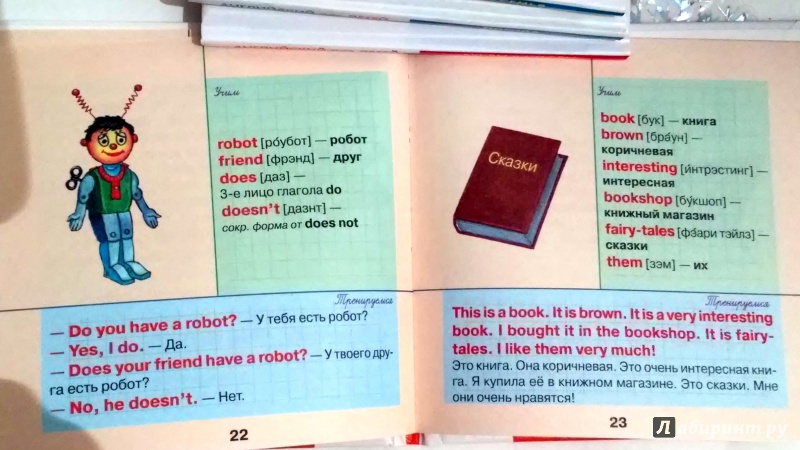 Учим
robot [ро́убот] — робот
friend [фрэнд] — друг
does [даз] —
3-е лицо глагола do
doesn't [дазнт] —
сокр. форма от does not
Тренируемся
— Do you have a robot? — У тебя есть робот?
— Yes, I do. — Да.
— Does your friend have a robot? — У твоего дру-
га есть робот?
— No, he doesn't. — Нет.
22
Сказки
Учим
book [бук] — книга
brown [бра́ун] —
коричневая
interesting [и́нтрэстинг] —
интересная
bookshop [бу́кшоп] —
книжный магазин
fairy-tales [фэ́ари тэйлз] —
сказки
them [зэм] — их
Тренируемся
This is a book. It is brown. It is a very interesting
book. I bought it in the bookshop. It is fairy-
tales. I like them very much!
Это книга. Она коричневая. Это очень интересная кни-
га. Я купила её в книжном магазине. Это сказки. Мне
они очень нравятся!
23
Лабиринт.ру